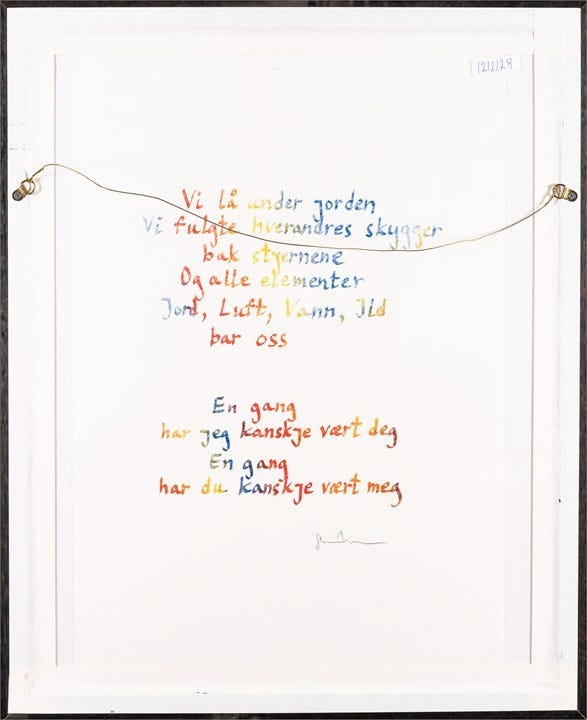 121228
Vi lå under jorden
Vi fulgte hverandres skygger
bak styernene
Og alle elementer
Jord, Luft, Vann, Ild
bar oss
En gang
har jeg kanskje vært deg
En gang
har du kanskje vært meg